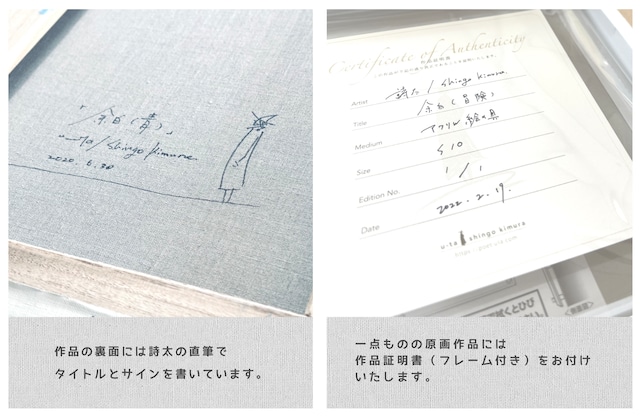 「余白(青)」
u-ta/Shingo Kimura
2020.6.30
作品の裏面には詩太の直筆で
タイトルとサインを書いています。
Certificate of Authenticity
作品証明書
Artist 詩太/Shingo Kimura
Title 余白(冒険)
Medium アクリル絵の具
Size S10
Edition No. 1/1
Date 2022.2.19.
u-ta shingo kimura
一点ものの原画作品には
作品証明書(フレーム付き)をお付け
いたします。